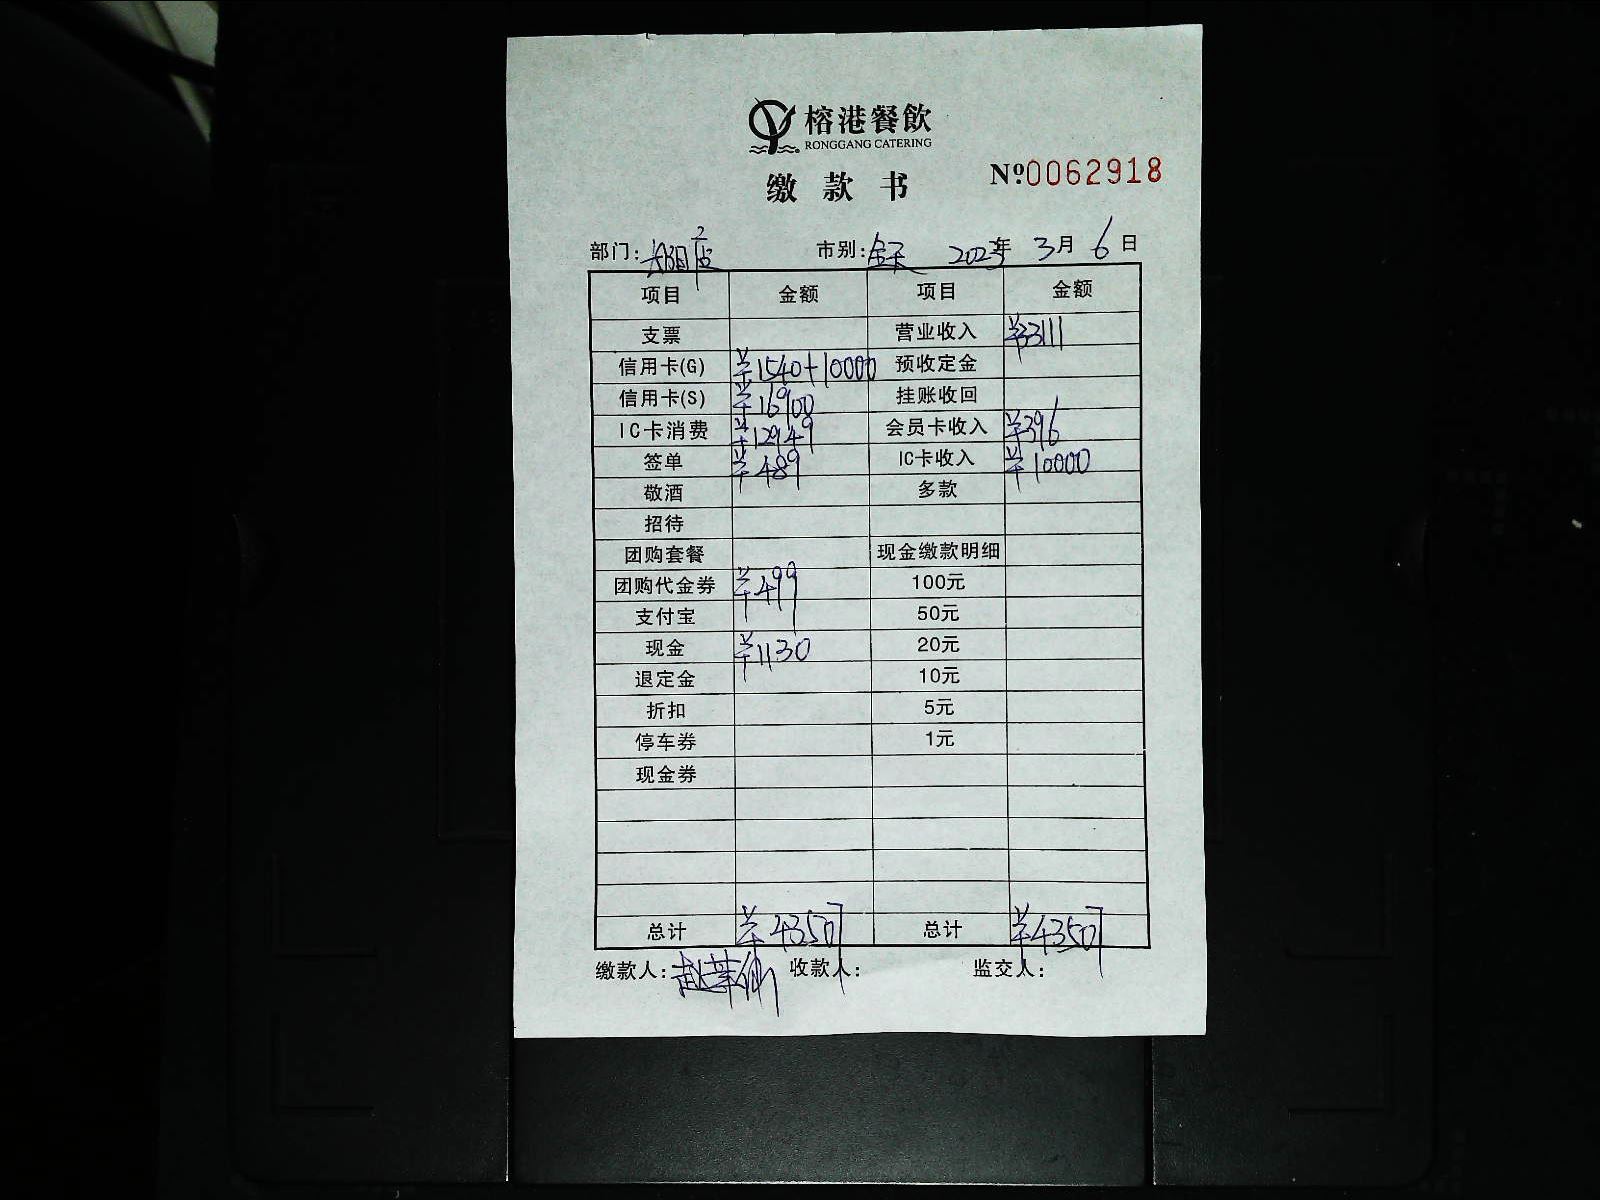 榕港餐飲
RONGGANG CATERING
缴款书
Nº.0062918
部门: 长阳店 市别: 全天 2023年 3月 6日
项目 金额 项目 金额
支票 营业收入 ¥33111
信用卡(G) ¥1540+10000 预收定金
信用卡(S) ¥16900 挂账收回
IC卡消费 ¥12949 会员卡收入 ¥396
签单 ¥489 IC卡收入 ¥10000
敬酒 多款
招待
团购套餐 现金缴款明细
团购代金券 ¥499 100元
支付宝 50元
现金 ¥1130 20元
退定金 10元
折扣 5元
停车券 1元
现金券
总计 ¥43507 总计 ¥43507
缴款人: 收款人: 监交人: